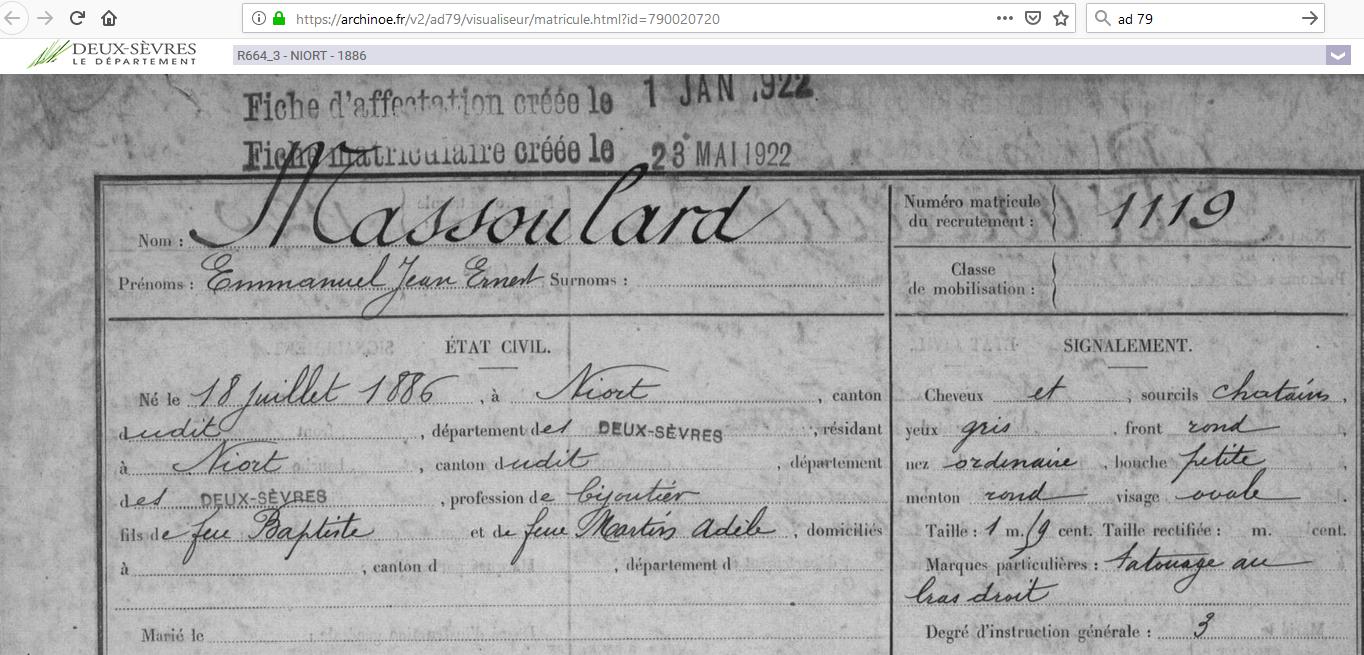 https://archinoe.fr/v2/ad79/visualiseur/matricule.html?id=790020720
ad 79
DEUX-SÈVRES
LE DÉPARTEMENT
R664_3 - NIORT - 1886
Fiche d'affectation créée le 1 JAN .1922
Fiche matriculaire créée le 23 MAI 1922
Nom : Massoulard
Prénoms : Emmanuel Jean Ernest Surnoms :
Numéro matricule
du recrutement : 1119
Classe
de mobilisation :
ÉTAT CIVIL.
Né le 18 juillet 1886, à Niort, canton
dudit, département des DEUX-SÈVRES, résidant
à Niort, canton dudit, département
des DEUX-SÈVRES, profession de bijoutier
fils de feu Baptiste et de feue Martin Adèle, domiciliés
à , canton d , département d
Marié le
SIGNALEMENT.
Cheveux et , sourcils chatains,
yeux gris , front rond ,
nez ordinaire , bouche petite ,
menton rond visage ovale .
Taille : 1 m. cent. Taille rectifiée : m. cent.
Marques particulières : tatouage au
bras droit
Degré d'instruction générale : 3